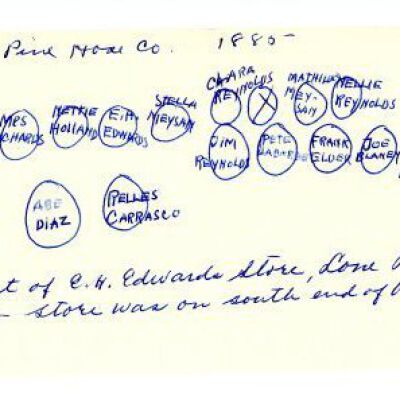 Pine Hose Co. 1885
CLARA REYNOLDS
MATHILDA MEYSAN
NELLIE REYNOLDS
MRS
CHARDS
NETTIE HOLLAND
E.H. EDWARDS
STELLA MEYSAN
X
JIM REYNOLDS
PETE LABORDE
FRANK ELDER
JOE BLANEY
ABE DIAZ
RELLES CARRASCO
t of E. H. Edwards Store, Lone
store was on south end of